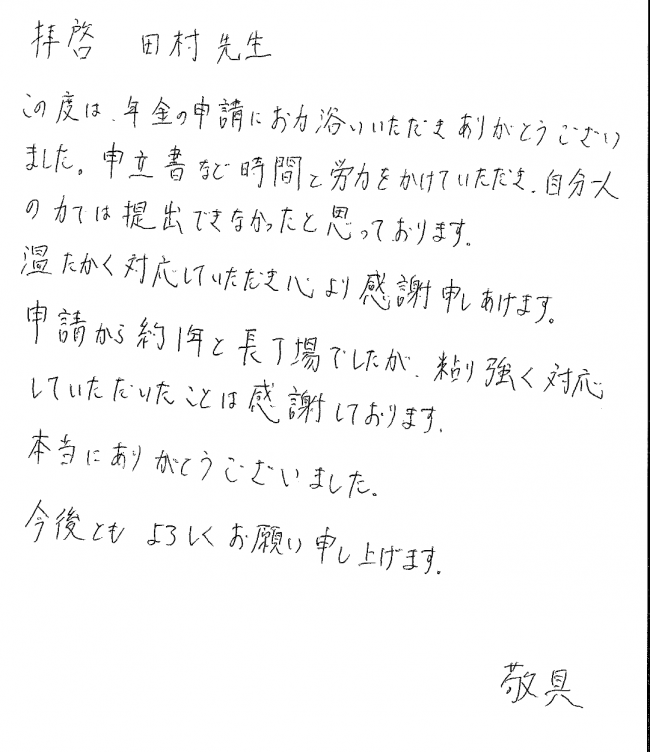 拝啓 田村先生
この度は、年金の申請にお力浴いいただきありがとうござい
ました。申立書など時間と労力をかけていただき、自分一人
の力では提出できなかったと思っております。
温たかく対応していただき心より感謝申しあげます。
申請から約1年と長丁場でしたが、粘り強く対応
していただいたことは感謝しております。
本当にありがとうございました。
今後ともよろしくお願い申し上げます。
敬具